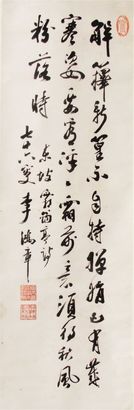 解籜新篁不自持嬋娟已有歲
寒姿要看凜凜霜前意須待秋風
粉落時
東坡霜筠亭詩
七十六叟李鴻章